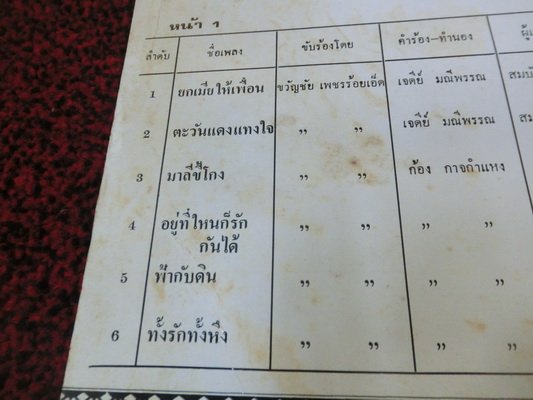 หน้า 1
ลำดับ ชื่อเพลง ขับร้องโดย คำร้อง-ทำนอง
1 ยกเมียให้เพื่อน ขวัญชัย เพชรร้อยเอ็ด เจดีย์ มณีพรรณ
2 ตะวันแดงแทงใจ ,, ,, เจดีย์ มณีพรรณ
3 มาลีขี้โกง ,, ,, ก้อง กาจกำแหง
4 อยู่ที่ไหนก็รัก ,, ,, ,, ,,
กันได้
5 ฟ้ากับดิน ,, ,, ,, ,,
6 ทั้งรักทั้งหึง ,, ,, ,, ,,